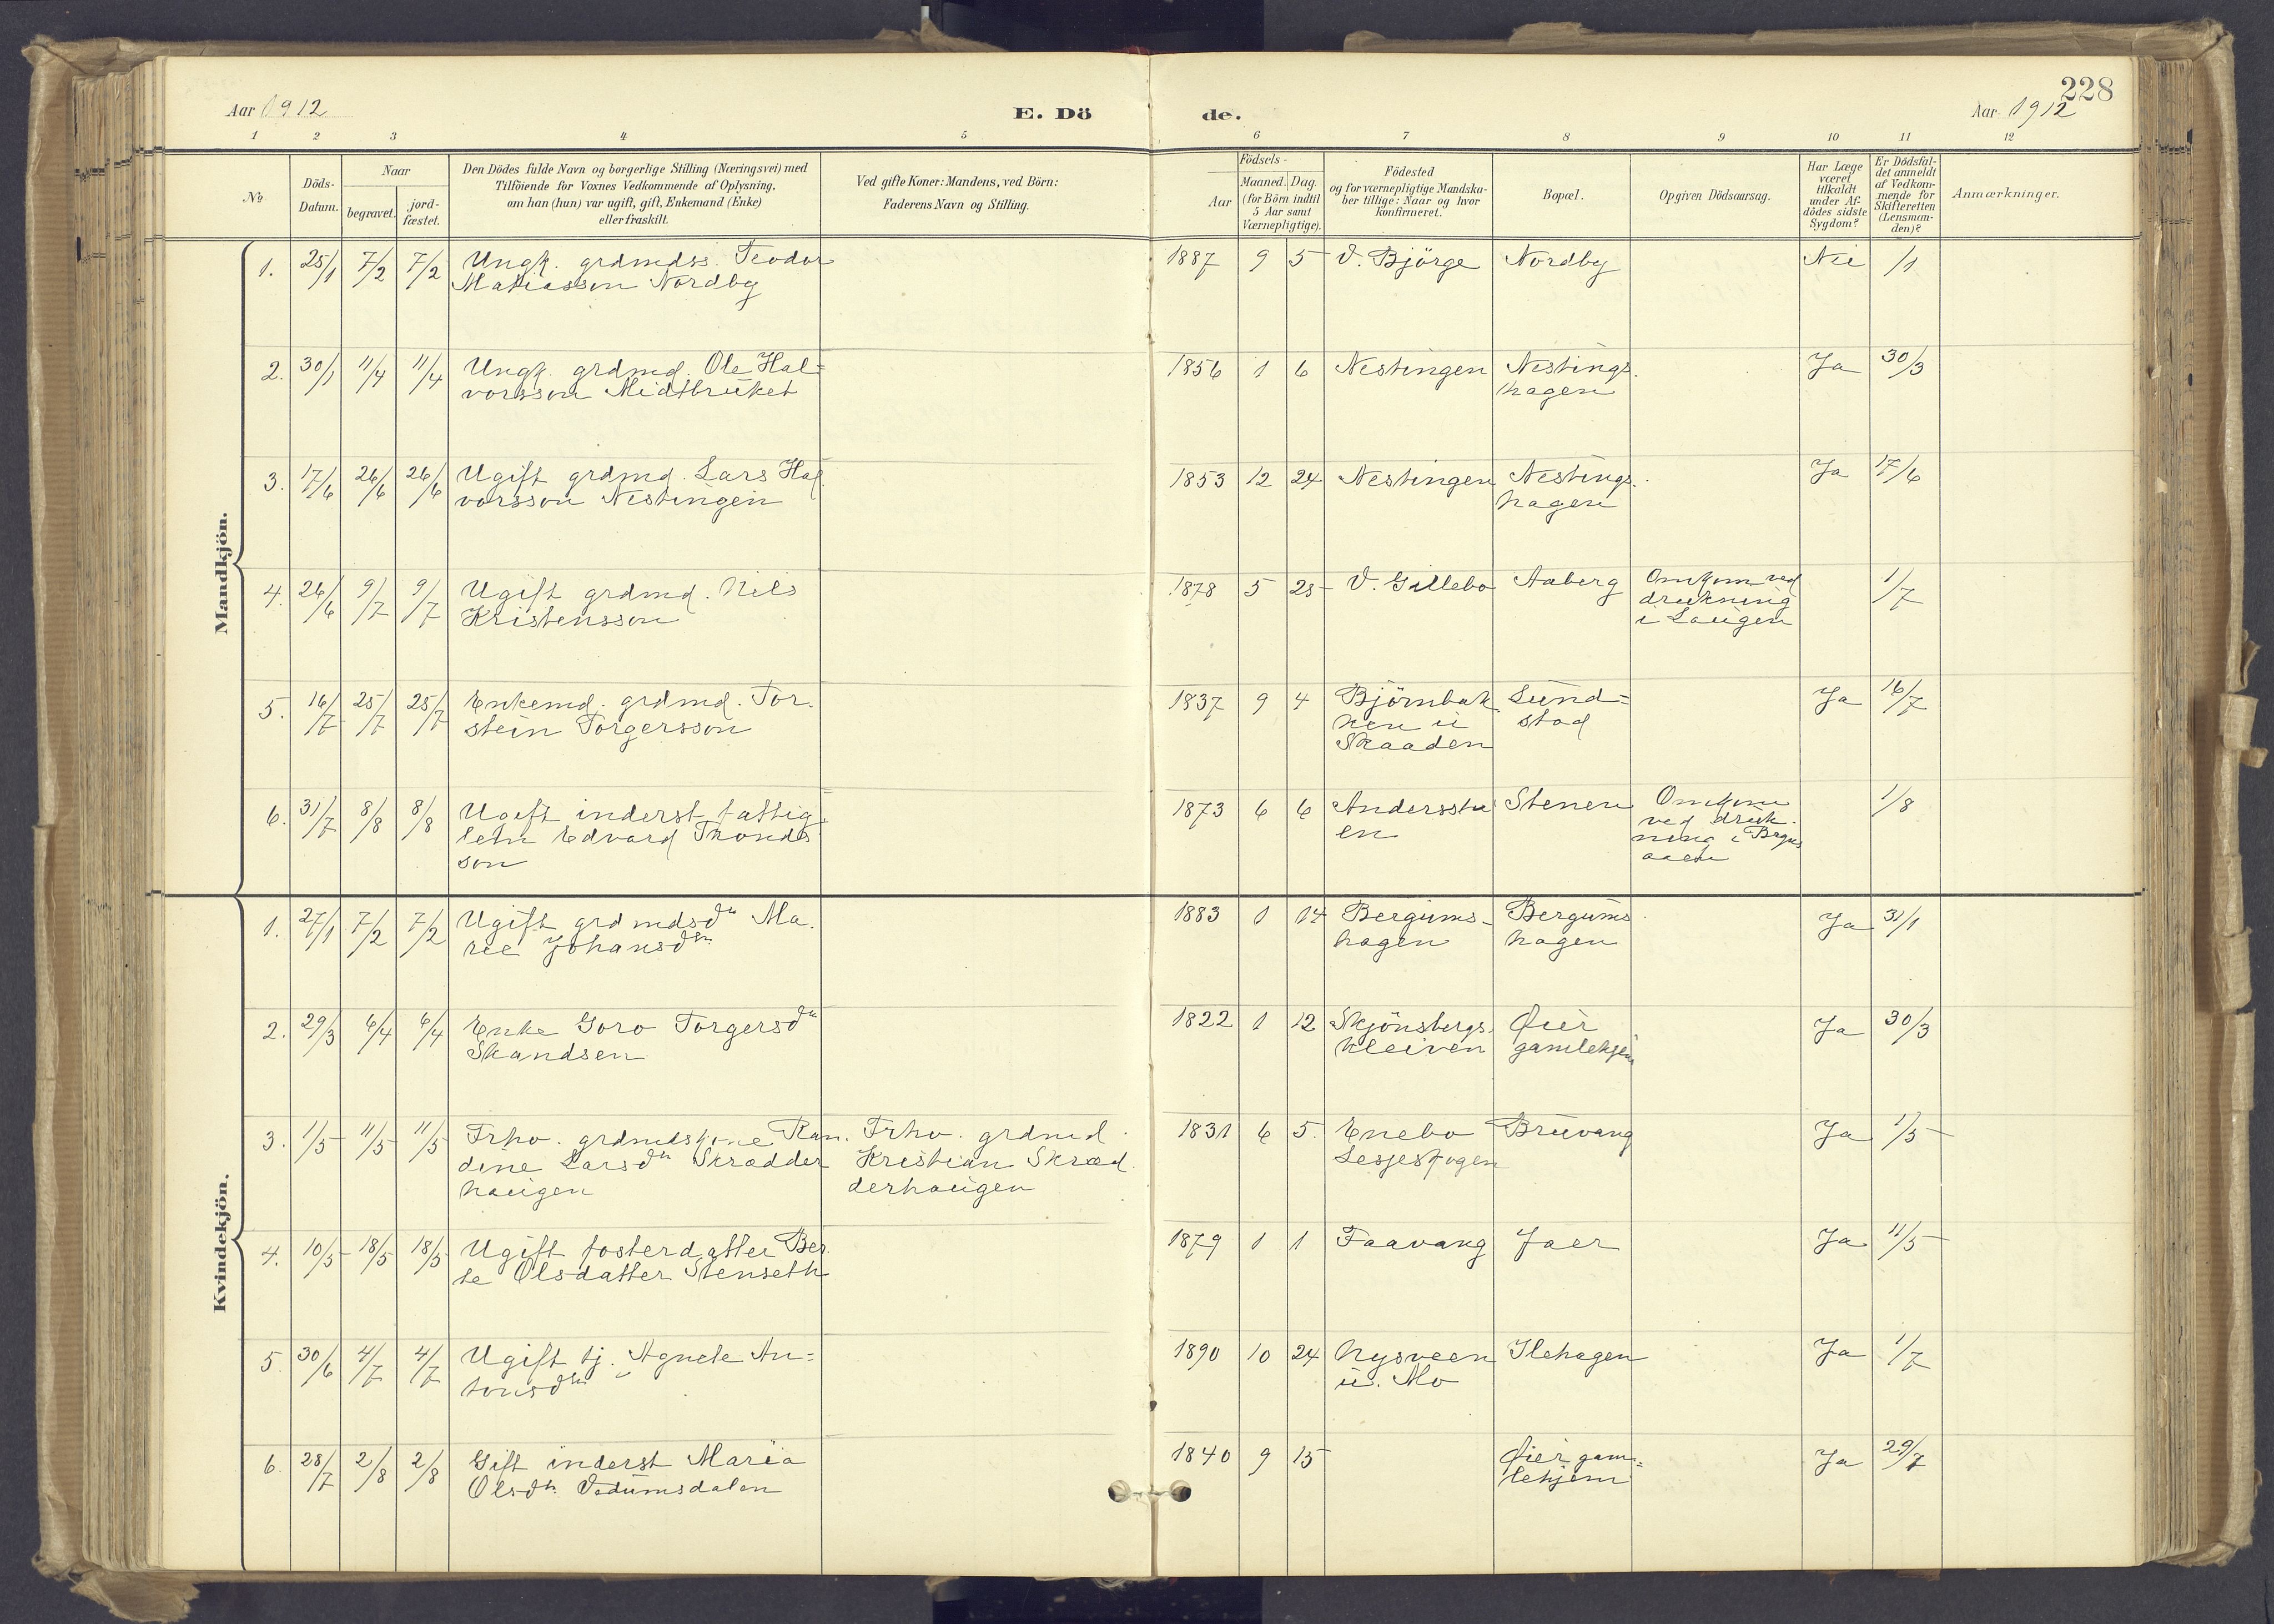 228
Aar 1912
E. Dö
de.
Aar 1912
1 2 3 4 5 6 7 8 9 10 11 12
No
Döds-
Datum.
Naar
begravet.
jord-
fæstet.
Den Dödes fulde Navn og borgerlige Stilling (Næringsvei) med
Tilföiende for Voxnes Vedkommende af Oplysning,
om han (hun) var ugift, gift, Enkemand (Enke)
eller fraskilt.
Ved gifte Koner: Mandens, ved Börn:
Faderens Navn og Stilling.
Födsels-
Aar
Maaned. Dag.
(for Börn indtil
5 Aar samt
Værnepligtige).
Födested
og for værnepligtige Mandska-
ber tillige: Naar og hvor
konfirmeret.
Bopæl.
Opgiven Dödsaarsag.
Har Læge
været
tilkaldt
under Af-
dödes sidste
Sygdom?
Er Dödsfal-
det anmeldt
af Vedkom-
mende for
Skifteretten
(Lensman-
den)?
Anmærkninger.
Mandkjön.
1. 25/1 7/2 7/2 Ungk. grdmdss. Teodor
Matiasson Nordby
1887 9 5 V. Björge Nordby Nei /1
2. 30/1 11/4 11/4 Ungk. grdmd. Ole Hal=
vorsson Midtbruket
1856 1 6 Nestingen Nestings.
hagen
Ja 30/3
3. 17/6 26/6 26/6 Ugift grdmd. Lars Hal
vorsson Nestingen
1853 12 24 Nestingen Nestings.
hagen
Ja 17/6
4. 26/6 9/7 9/7 Ugift grdmd. Nils
Kristensson
1878 5 25 V. Gillebo Aaberg Omkom ved
drukning
i Laugen
1/7
5. 16/7 25/7 25/7 Enkemd. grdmd. Tor.
stein Torgersson
1837 9 4 Björnbak
ken u
Skaaden
Lund=
stad
Ja 16/7
6. 31/7 8/8 8/8 Ugift inderst fattig=
lem Edvard Tronds
son
1873 6 6 Andersstu
en
Stenen Omkom
ved druk.
ning i
aaen
1/8
Kvindekjön.
1. 27/1 7/2 7/2 Ugift grdmdsdtr Ma.
rie Johansdtr
1883 1 14 Bergums-
hagen
Bergums.
hagen
Ja 31/1
2. 29/3 6/4 6/4 Enke Goro Torgersdtr
Skandsen
1822 1 12 Skjönsbergs.
kleiven
Öier
gamlehjem
Ja 30/3
3. 1/5 11/5 11/5 Frhv. grdmdskone Ran.
dine Larsdtr Skrædder
haugen
Frhv. grdmd.
Kristian Skræd.
derhaugen
1831 6 5. Enebo
Lesjeskogen
Bruvang Ja 1/5
4. 10/5 18/5 18/5 Ugift fosterdatter Ber.
te Olsdatter Stenseth
1879 1 1 Faavang Jaer Ja 11/5
5. 30/6 4/7 4/7 Ugift tj. Agnete An=
tonsdtr
1890 10 24 Nysveen
u. Mo
Ilehagen Ja 1/7
6. 28/7 2/8 2/8 Gift inderst Maria
Olsdtr. Vedumsdalen
1840 9 15 Öier gam=
lehjem
Ja 29/7